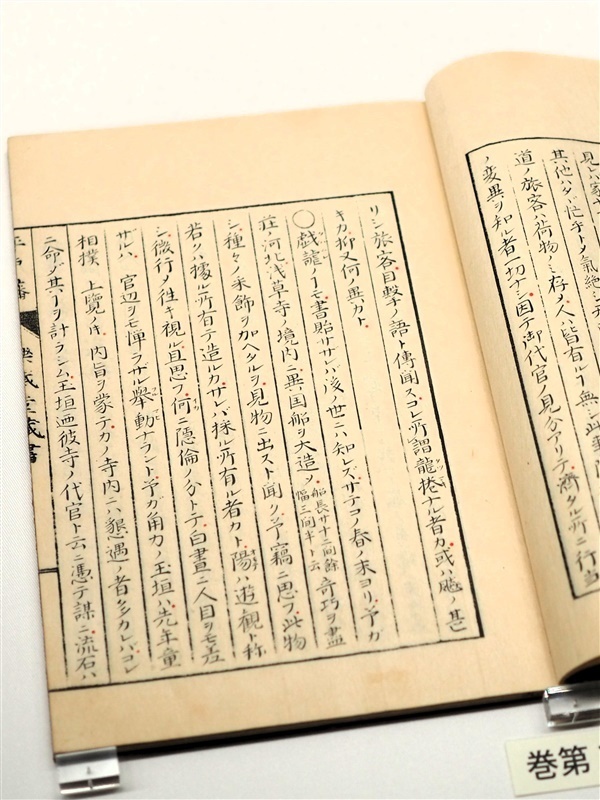 其他ハタヾ忙乎トノ氣絶シ
道ノ旅客ハ荷物ノミ存メ人ハ皆有ルヿ無シ此動
ノ変異ヲ知ル者一切ナシ因テ御代官ノ見分アリテ濟タル所ニ行当
リシ旅客目撃ナノ語ト傳聞スコレ所謂龍捲ナル者カ或ハ颷ノ甚
キカ抑又何ノ異カト
〇戯龍ノヿモ書貽サヾレハ後ノ世ニハ知レズサテコノ春ノ末ヨリ予カ
荘ノ河北浅草寺ノ境内ニ異国船ヲ大造メ船長サ十二間餘幅三間半ト云奇巧ヲ盡
シ種々ノ釆飾ヲ加ヘタルヲ見物ニ出スト聞ク予竊ニ思フ此物
若クハ據ル所有テ造ルカサレバ採ル所有ル者カト陽ハ遊観ト称
シ微行メ往キ視ル且思フ何ニ隠倫ノ分トテ白晝ニ人目ヲモ差
ザルハ官辺ヲモ憚ラザル舉動ナラント予ガ角力ノ玉垣ハ先年童
相撲 上覧ノ片内旨ヲ蒙テカノ寺内ニハ懇遇ノ者多カレバコレ
ニ命ジ其ヿヲ計ラシム玉垣迺彼寺ノ代官ト云ニ憑テ謀ニ流石ハ
平戸藩 樂歳堂蔵書
巻第